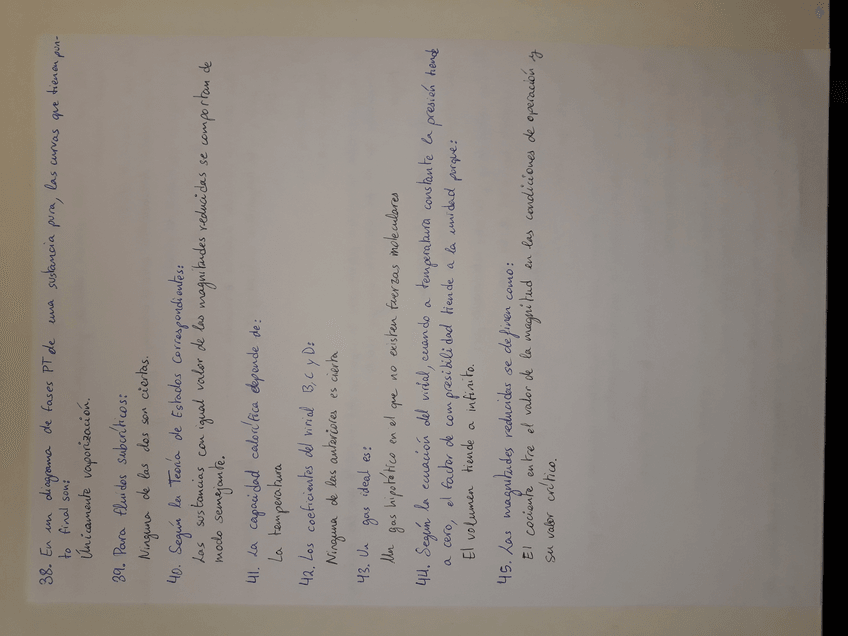 38. En un diagrama de fases PT de una sustancia pura, las curvas que tienen pun-
to final son:
Únicamente vaporización.
39. Para fluidos subcríticos:
Ninguna de las dos son ciertas.
40. Según la Teoría de Estados Correspondientes:
Las sustancias con igual valor de las magnitudes reducidas se comportan de
modo semejante.
41. La capacidad calorífica depende de:
La temperatura
42. Los coeficientes del virial B, C y D:
Ninguna de las anteriores es cierta
43. Un gas ideal es:
Un gas hipotético en el que no existen fuerzas moleculares
44. Según la ecuación del virial, cuando a temperatura constante la presión tiende
a cero, el factor de compresibilidad tiende a la unidad porque:
El volumen tiende a infinito.
45. Las magnitudes reducidas se definen como:
El cociente entre el valor de la magnitud en las condiciones de operación y
su valor crítico.